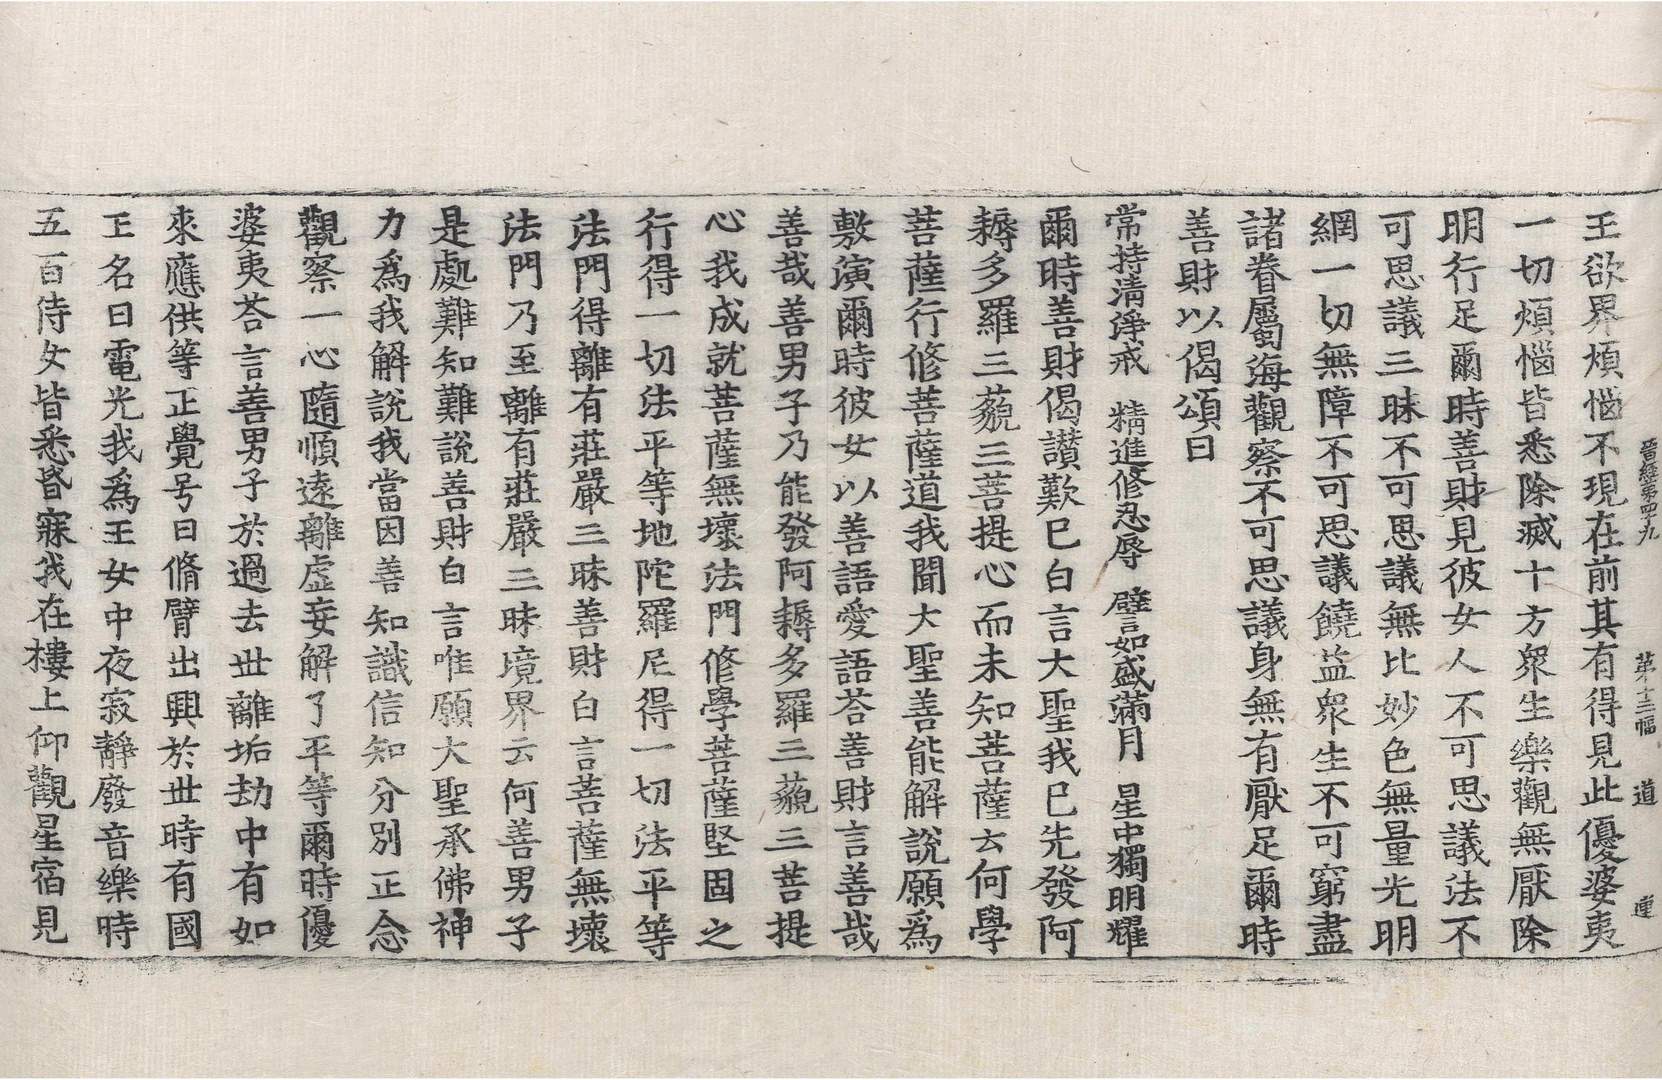 晉經第四十九　第十三幅　道
王欲界煩惱不現在前其有得見此優婆夷
一切煩惱皆悉除滅十方衆生樂觀無厭除
明行足爾時善財見彼女人不可思議法不
可思議三昧不可思議無比妙色無量光明
網一切無障不可思議饒益衆生不可窮盡
諸眷屬海觀察不可思議身無有厭足爾時
善財以偈頌曰
常持淸淨戒　精進修忍辱　譬如盛滿月　星中獨明耀
爾時善財偈讃歎已白言大聖我已先發阿
耨多羅三藐三菩提心而未知菩薩云何學
菩薩行修菩薩道我聞大聖善能解說願爲
敷演爾時彼女以善語愛語荅善財言善哉
善哉善男子乃能發阿耨多羅三藐三菩提
心我成就菩薩無壞法門修學菩薩堅固之
行得一切法平等地陀羅尼得一切法平等
法門得離有莊嚴三昧善財白言菩薩無壞
法門乃至離有莊嚴三昧境界云何善男子
是處難知難說善財白言唯願大聖承佛神
力爲我解說我當因善知識信知分別正念
觀察一心隨順遠離虛妄解了平等爾時優
婆夷荅言善男子於過去世離垢劫中有如
來應供等正覺号曰脩臂出興於世時有國
王名曰電光我爲王女中夜寂靜廢音樂時
五百侍女皆悉昏寐我在樓上仰觀星宿見